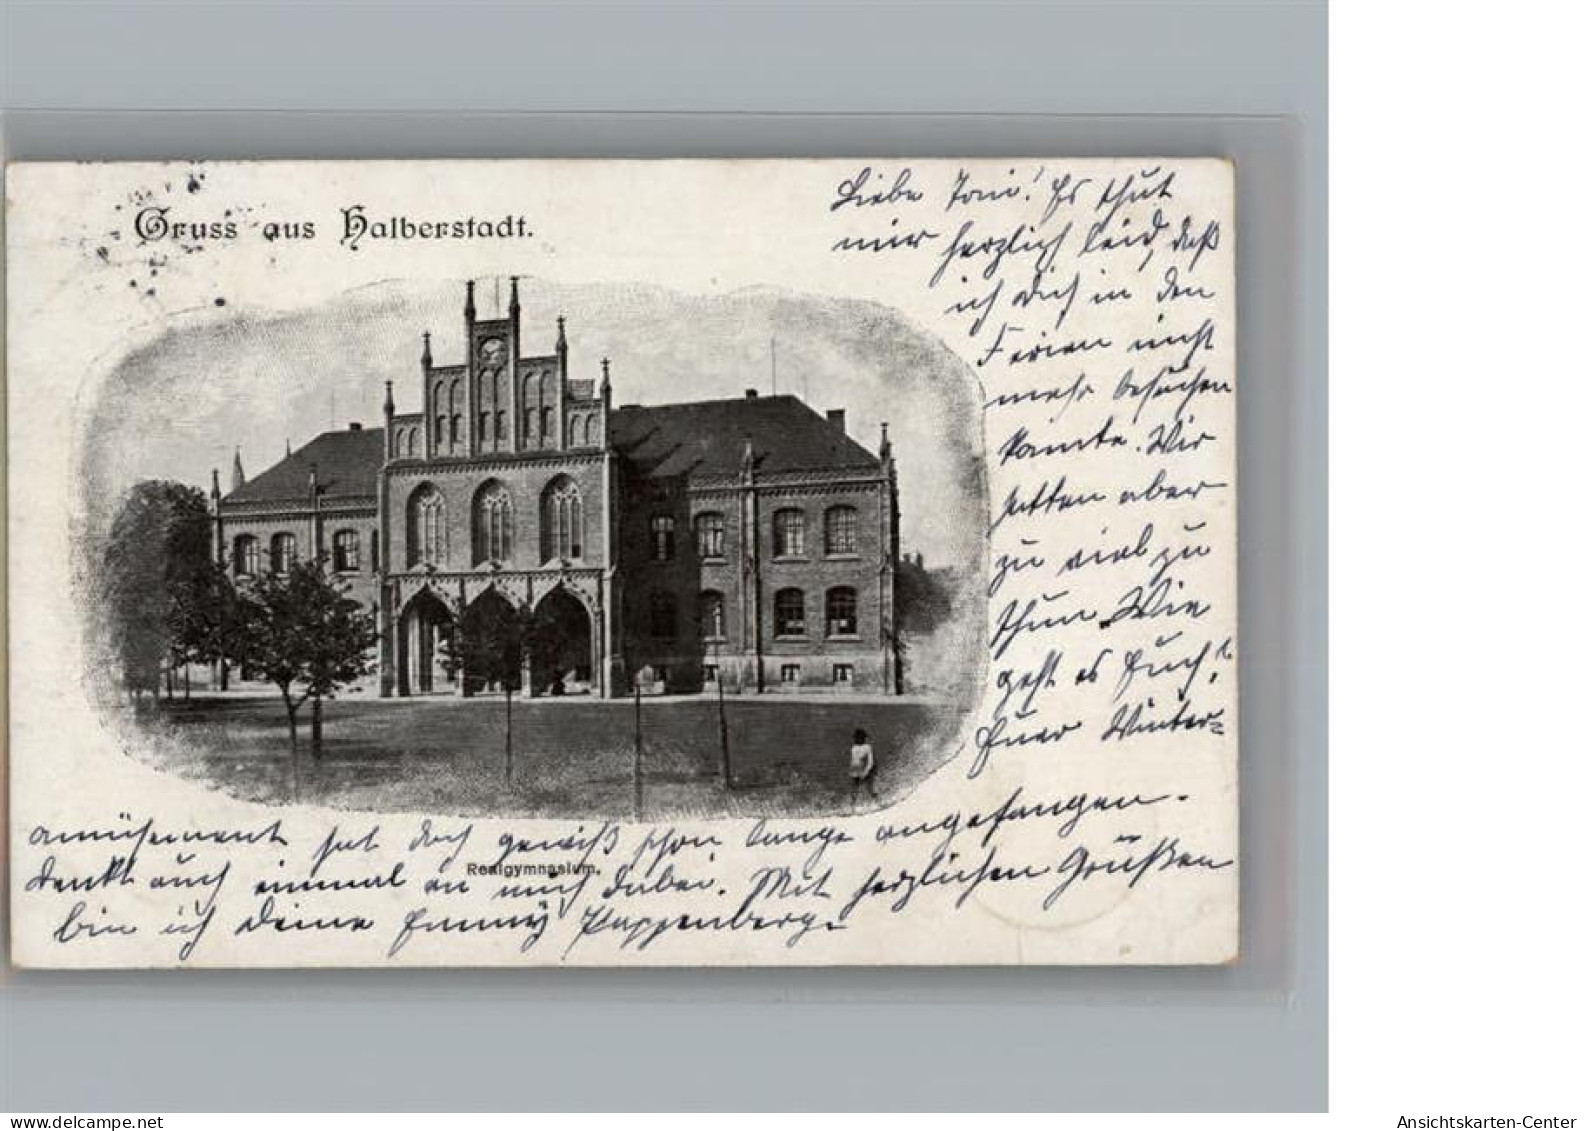 Gruss aus Halberstadt.
Liebe Toni! Es thut
mir herzlich leid, daß
ich Dich in den
Ferien nicht
mehr besuchen
konnte. Wir
hatten aber
zu viel zu
thun. Wie
geht es Euch?
Euer Winter=
amüsement hat doch gewiß schon lange angefangen.
Denkt auch einmal an mich dabei. Mit herzlichen Grüßen
Realgymnasium.
bin ich Deine Emmy Pappenberg.
delcampe.net
Ansichtskarten-Center